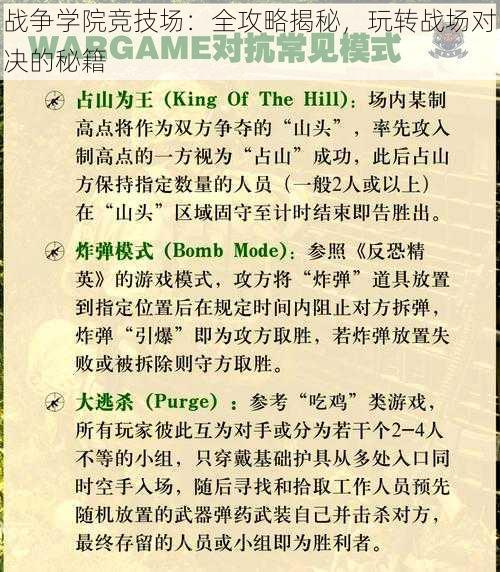 战争学院竞技场：全攻略揭秘，玩转战场对
决的秘籍
WARGAME对抗常见模式
占山为王 (King Of The Hill)：场内某制
高点将作为双方争夺的“山头”，率先攻入
制高点的一方视为“占山”成功，此后占山
方保持指定数量的人员（一般2人或以上）
在“山头”区域固守至计时结束即告胜出。
炸弹模式 (Bomb Mode)：参照《反恐精
英》的游戏模式，攻方将“炸弹”道具放置
到指定位置后在规定时间内阻止对方拆弹，
炸弹“引爆”即为攻方取胜，若炸弹放置失
败或被拆除则守方取胜。
大逃杀 (Purge) ：参考“吃鸡”类游戏，
所有玩家彼此互为对手或分为若干个2—4人
不等的小组，只穿戴基础护具从多处入口同
时空手入场，随后寻找和拾取工作人员预先
随机放置的武器弹药武装自己并击杀对方，
最终存留的人员或小组即为胜利者。